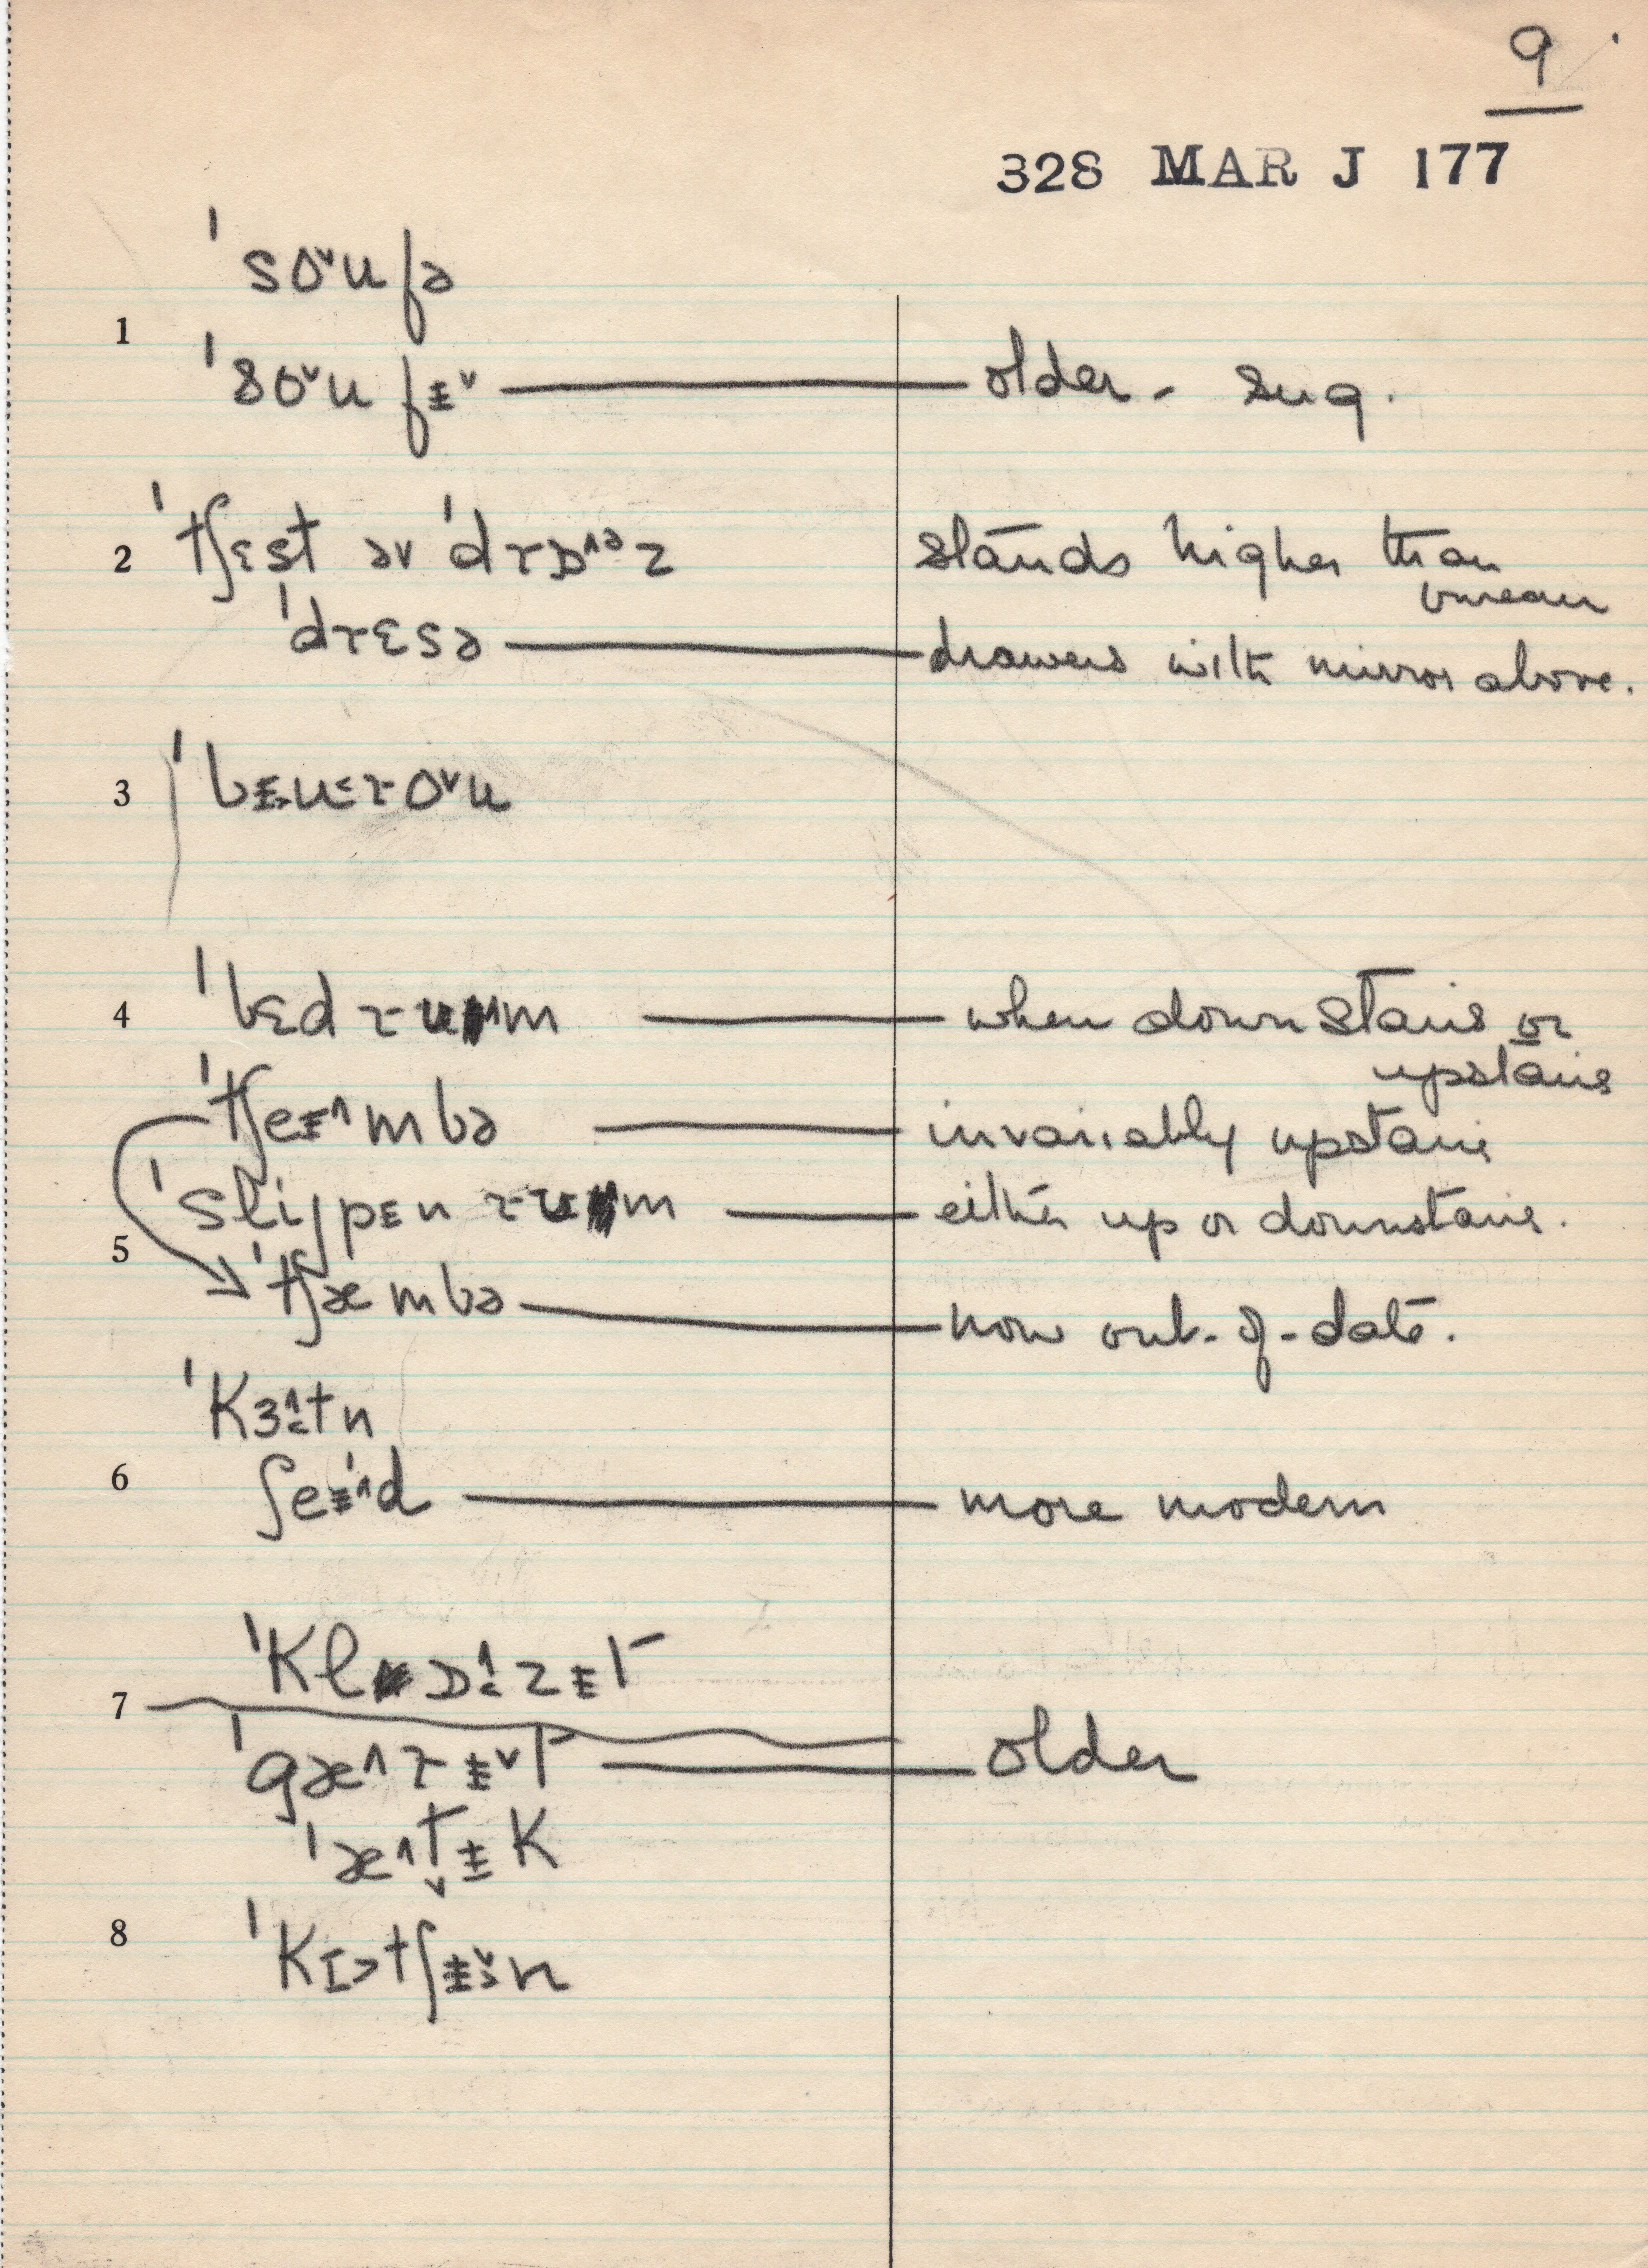 9
328 MAR J 177
ˈsoˇufə
1
ˈsoˇufᵻˇ — older - sug.
2 ˈtʃɛst əv ˈdrɒ^ᵊz stands higher than
bureau
ˈdrɛsə — drawers with mirror above.
3 ˈbᵻu˂roˇu
4 ˈbɛdrum — when downstairs or
upstairs
ˈtʃeᵻ^mbə — invariably upstairs
ˈslijpᵻn rum — either up or downstairs.
5
ˈtʃæmbə — now out-of-date.
ˈkɜ^˂tn
6 ʃeᵻ^d — more modern
ˈklɒ^˂zᵻt
7
ˈgæ^rᵻˇt — older
ˈæ^t̬ᵻk
8
ˈkɪ˃tʃᵻˇ˃n